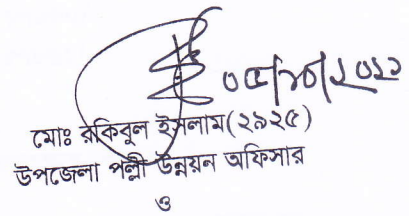 ০৫/১০/২০২১
মোঃ রকিবুল ইসলাম(২৯২৫)
উপজেলা পল্লী উন্নয়ন অফিসার
ও